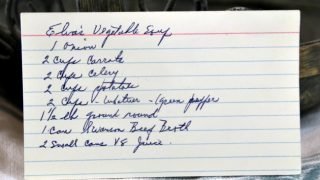 Elva's Vegetable Soup
1 onion
2 cups carrots
2 cups celery
2 cups potatoes
2 cups - whatever - (green pepper
1 1/2 lb ground round
1 can Swanson Beef Broth
2 small cans V8 Juice.